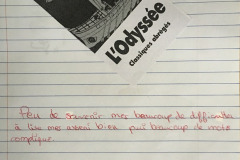 L'Odyssée
Classiques abrégés
Peu de souvenir mes beaucoup de difficultés
à lire mes assesé bien puis beaucoup de mots
compliqué.